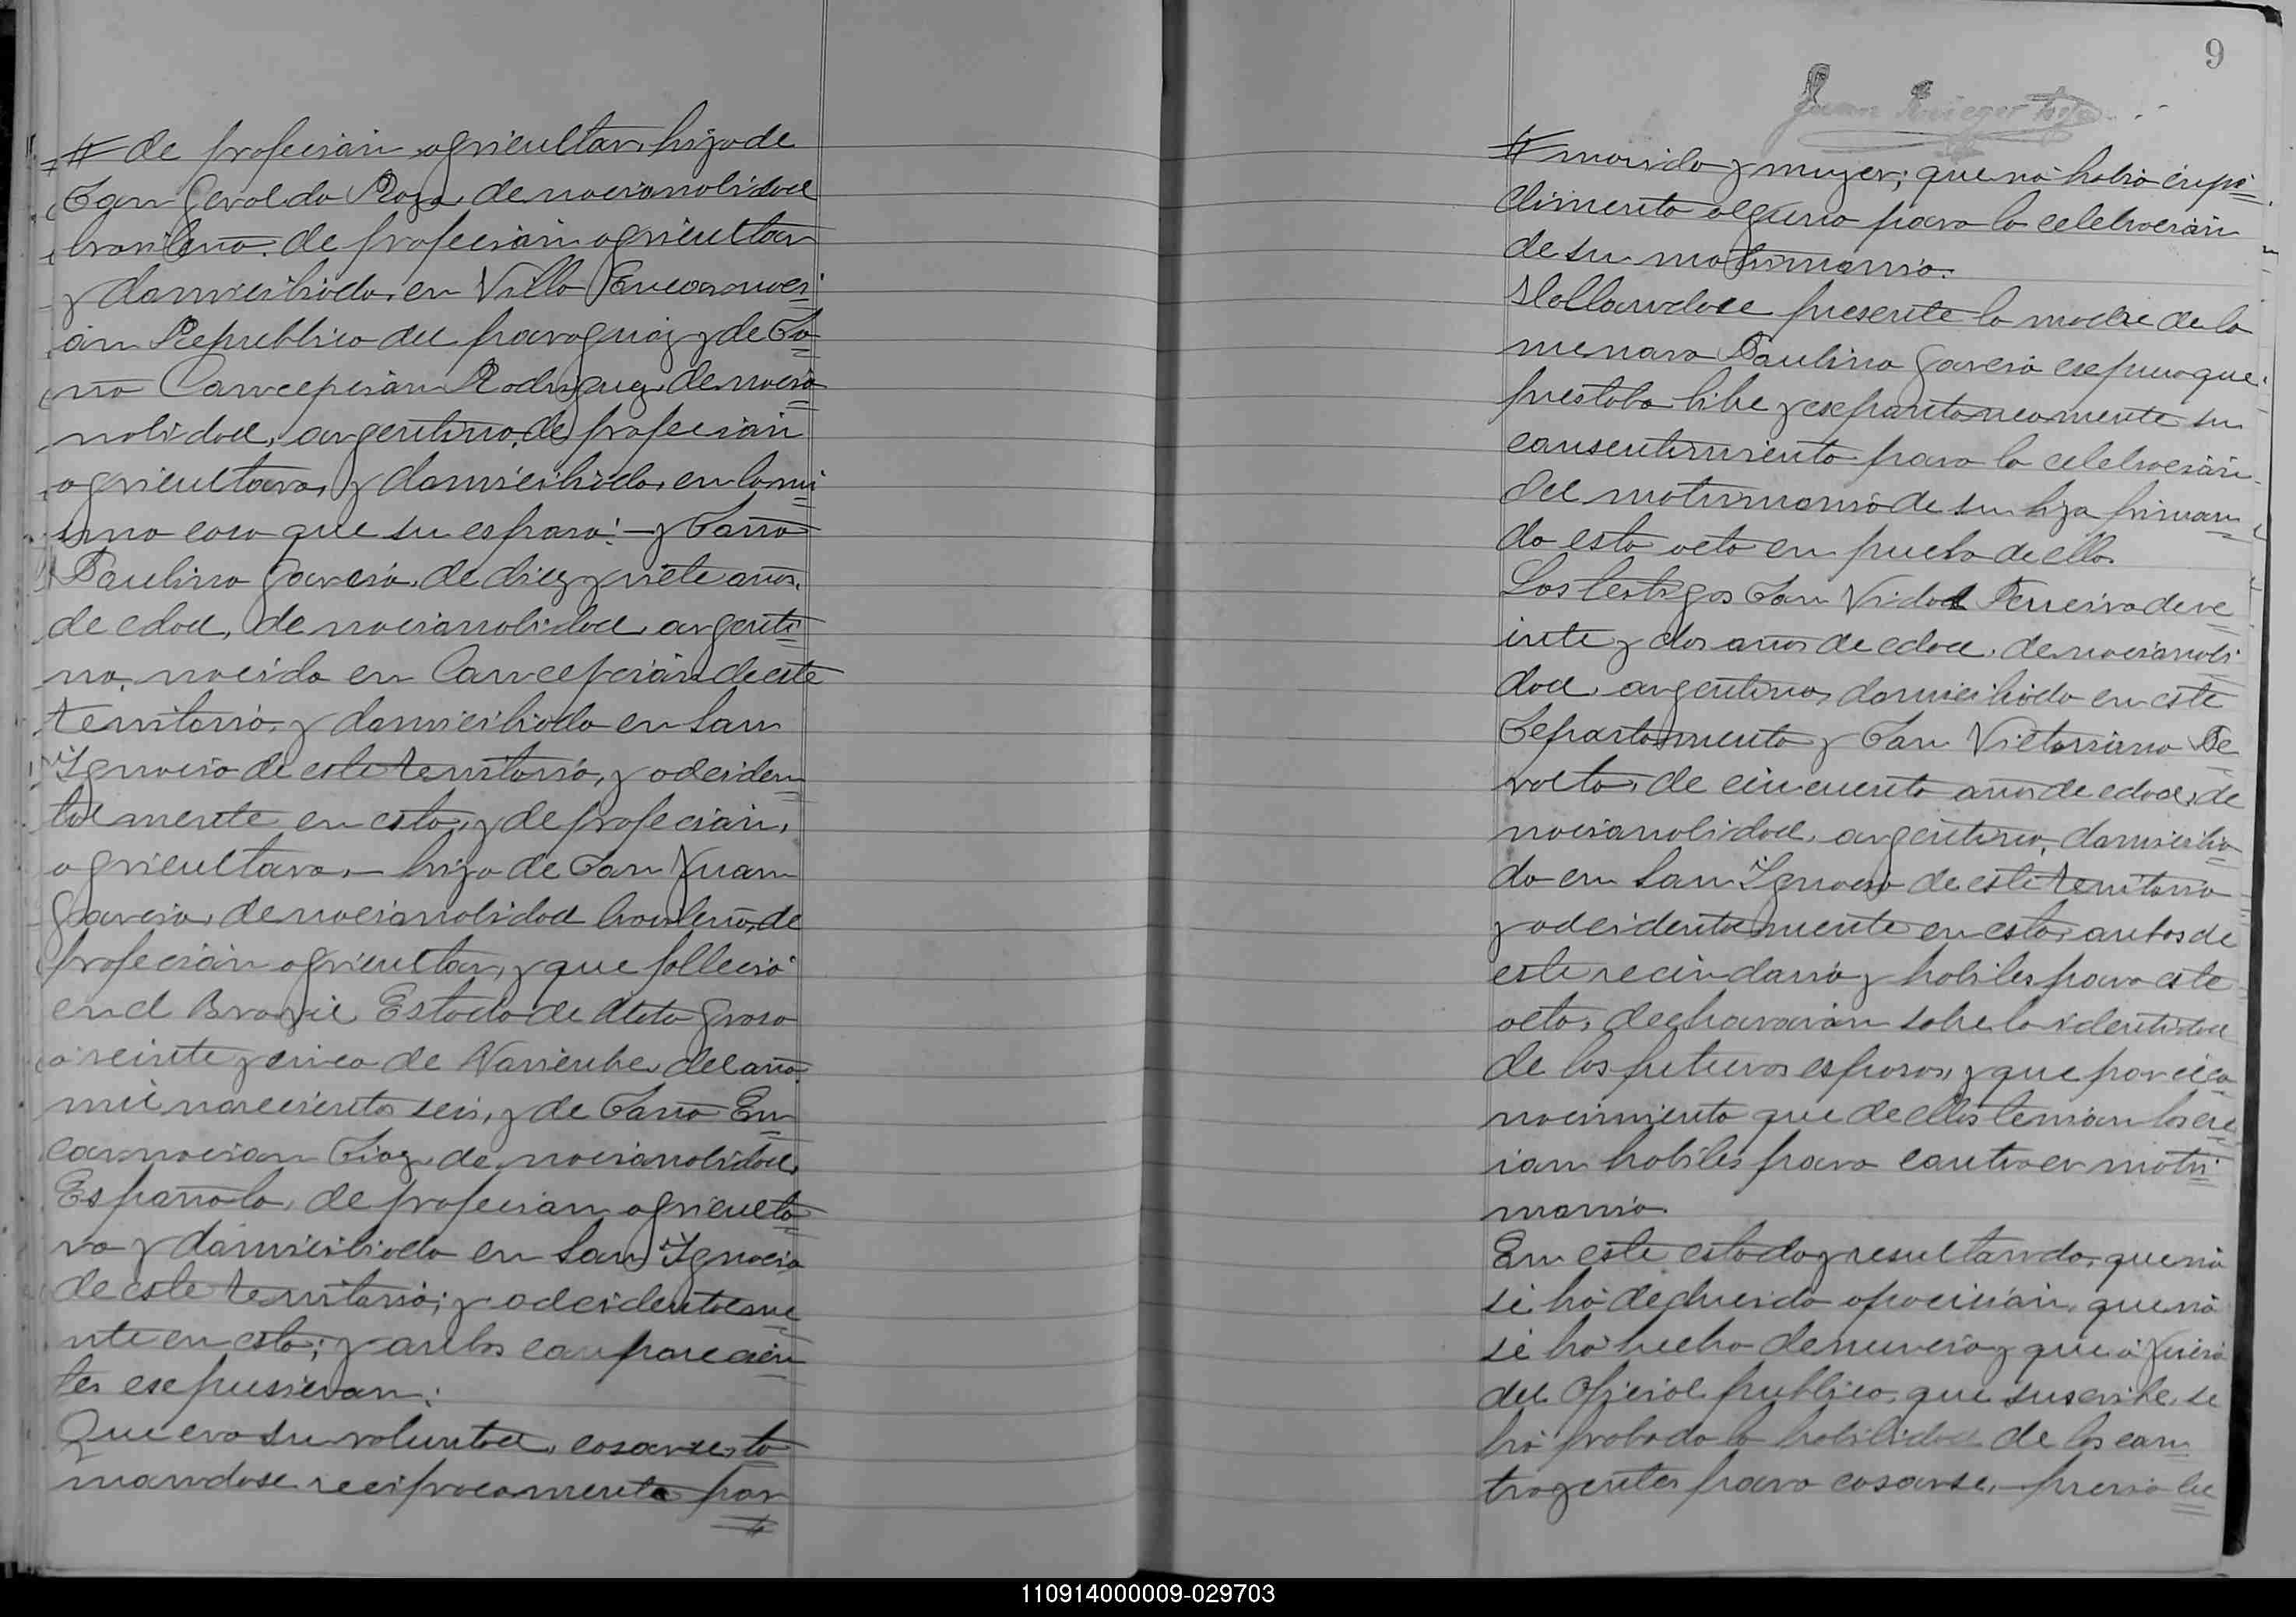 # de profecian agricultor, hijo de
Don Geraldo Roza, de nacianalidad
brasileña. de profecian agricultor
y damiciliado, en Villa Encarnaci
ón Republica del paraguay y de Do
ña Cancepcian Rodriguez, de nacia
nalidad, argentina, de profecian
agricultara, y damiciliada, en la mi
sma casa que su espaso; – y Daña
Paulina Garcia, de diez y siete años,
de edad, de nacianalidad, argenti
na, nacida en Cancepcian de este
territario, y damiciliada en San
Ygnacio de este territario, y adciden
tal mente en esta, y de profecian,
agricultara, – hija de Dan Juan
Garcia, de nacianalidad brasileña, de
profecian agricultar, y que fallecio
en el Brazil, Estado de Mato Groso
a veinte y cinco de Noviembre, del año
mil novecientos seis, y de Daña En
carnacian Diaz, de nacianalidad,
Española, de profecian agriculta
ra y damiciliada en San Ygnacio
de este territario; y adcidentalme
nte en esta; y ambos camparecien
tes escpusieran:
Que era su voluntad, casarse, to
mandose reciprocamente por
9
Juan Krieger hijo
# marido y mujer; que no habia impe
dimento alguno para la celebracian
de su matrimania.
Hallandose presente la madre de la
menara Paulina Garcia escpuso que
prestaba libre y escpantaneamente su
cansentimiento para la celebracian
del matrimanio de su hija firman
do esta acta en prueba de ello.
Los testigos Dan Vidal Ferreira de ve
inte y dos años de edad, de nacianali
dad, argentina, damiciliado en este
Departamento y Dan Victariano Pe
ralta, de cincuenta años de edad, de
nacianalidad, argentina, damicilia
do en San Ygnacio de este territario
y adcidentalmente en esta, ambos de
este vecindario y habiles para este
acto, declararan sobre la identidad
de los futuros esposos, y que por el co
nocimiento que de ellos tenian los cre
ian habiles para cantraer matri
manio.
En este estado y resultando, que no
se ha deducido oposician, que no
se ha hecho denuncia y que a juicio
del Oficial publico, que suscribe, se
ha probado la habilidad de los can
trayentes para casarse, – previa lec
110914000009-029703